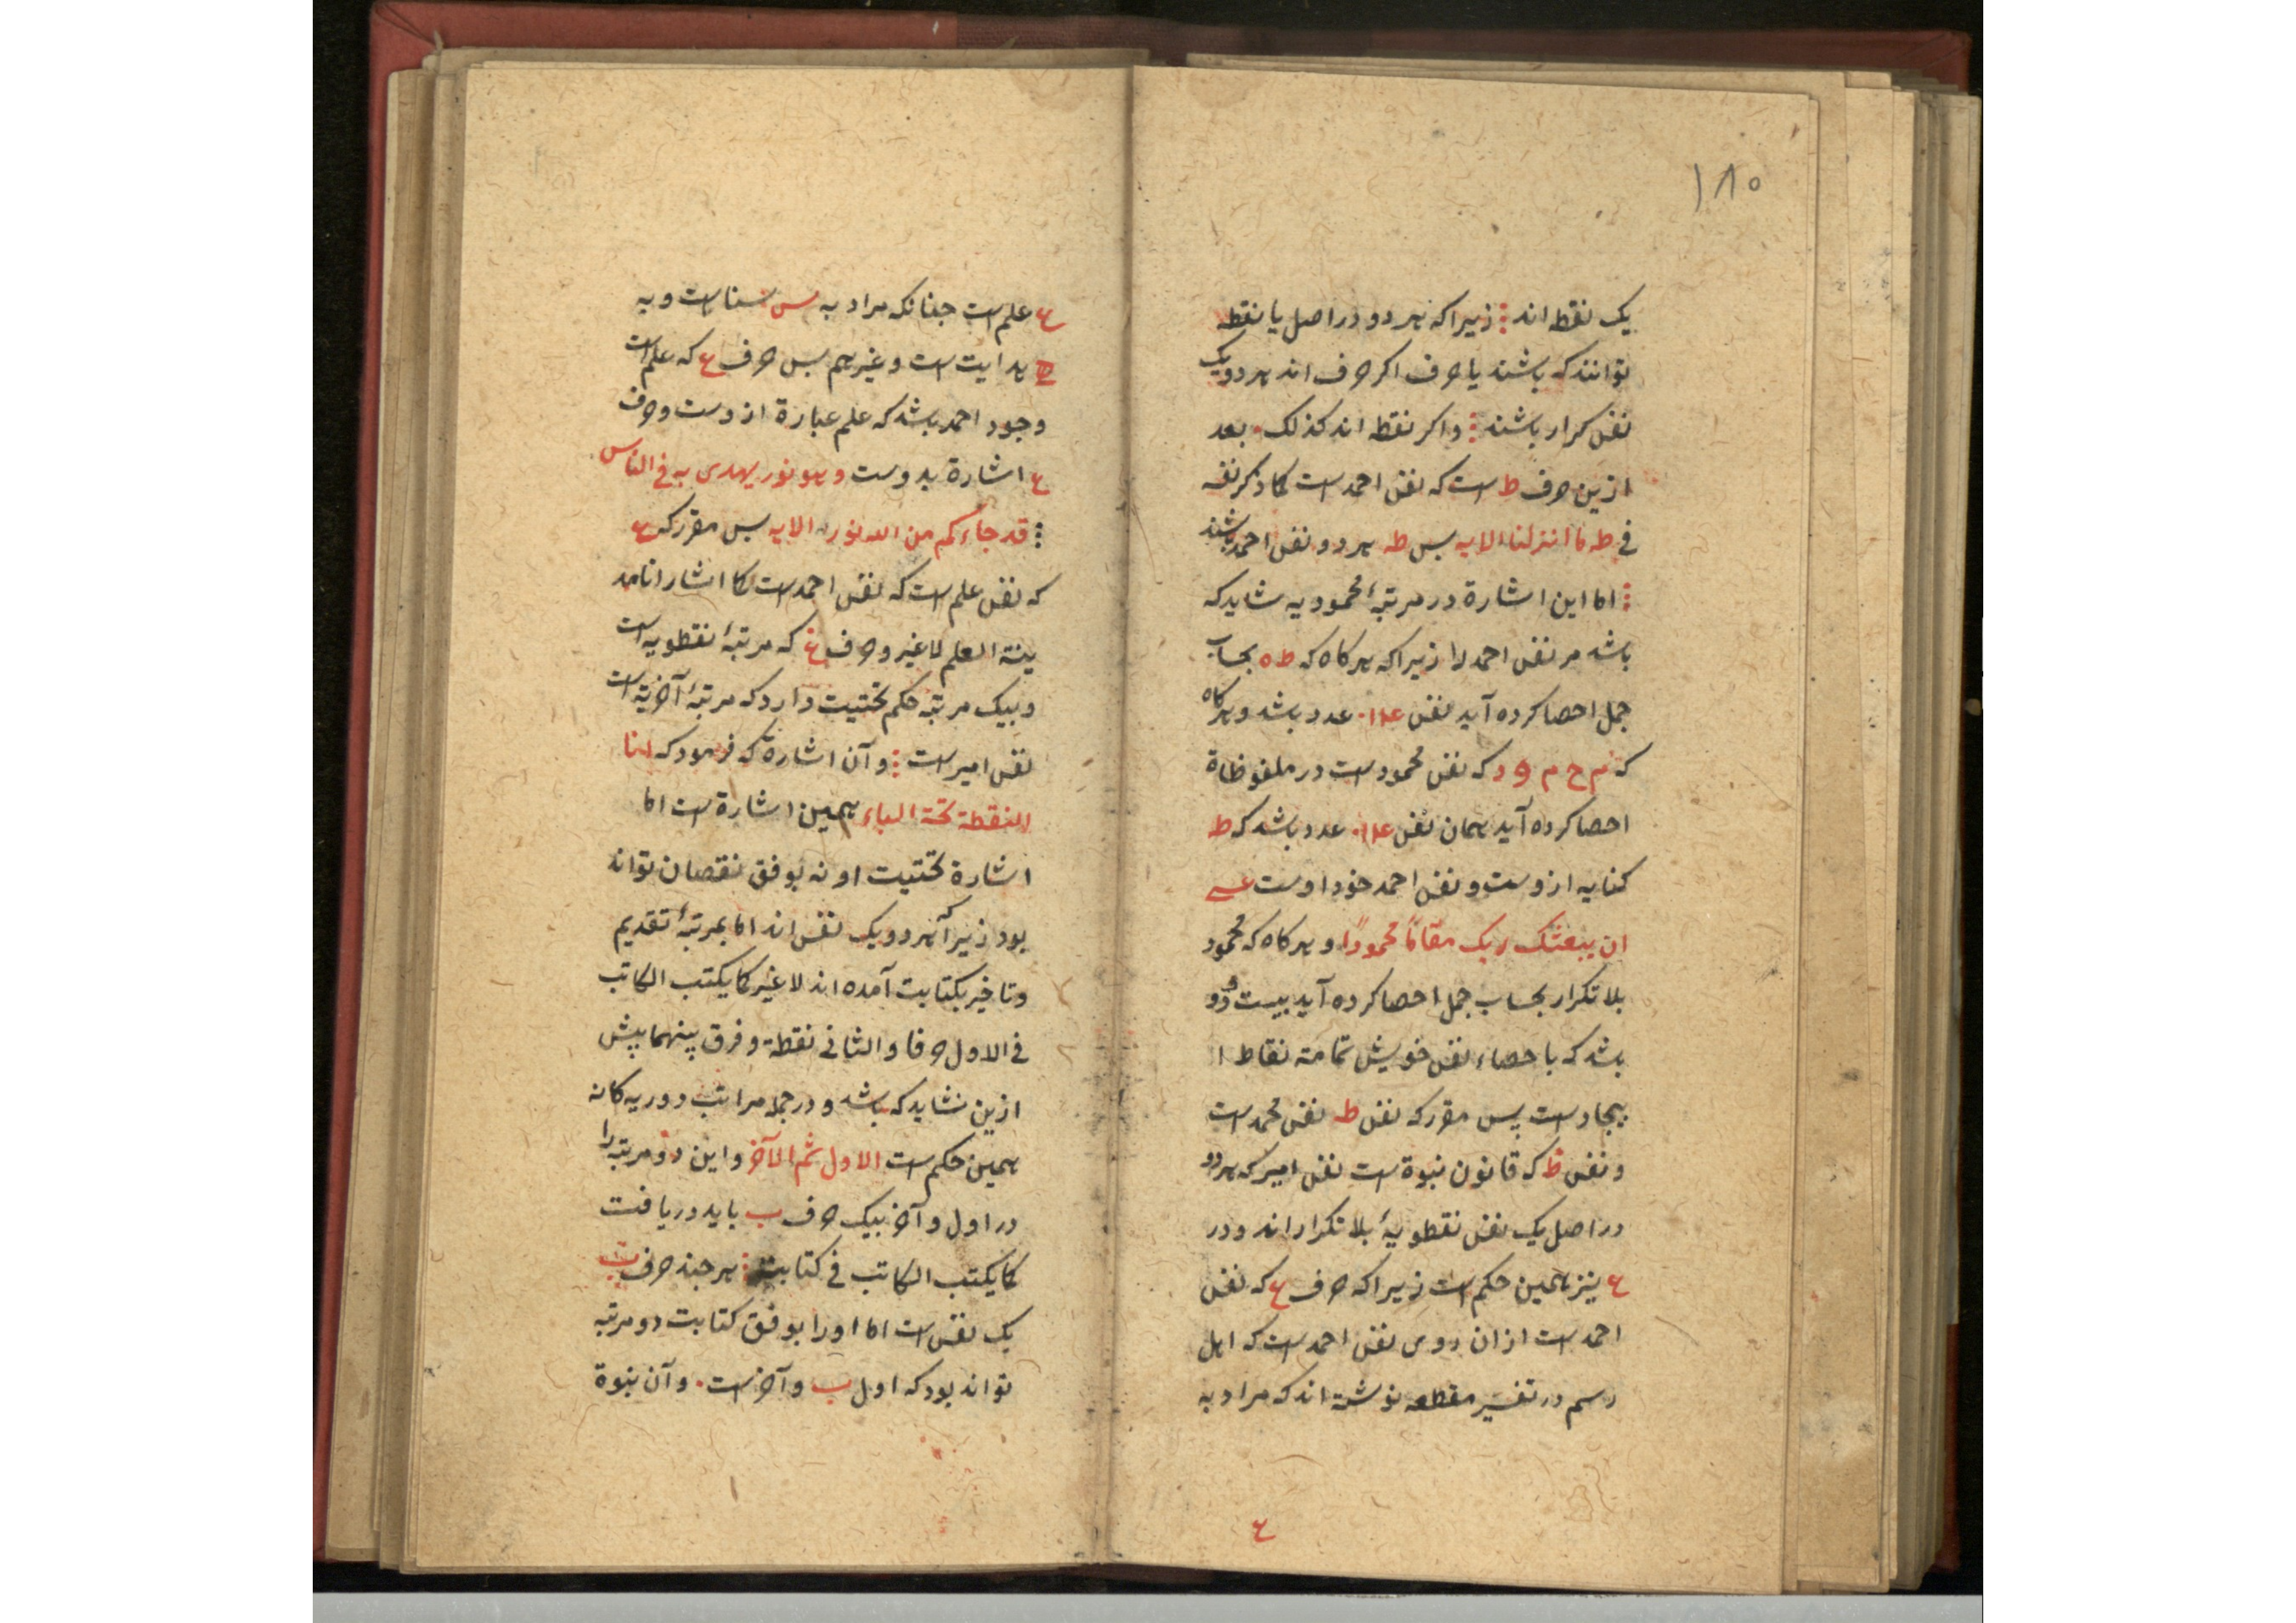 ۱۸۰
یک نقطه اند زیرا که هر دو در اصل یا نقطه
توانند که باشند یا حرف اکر حرف اند هر دو یک
نفس کرار باشند واکر نقطه اند کذلک بعد
ازین حرف ط است که نفس احمد است کما ذکر نفسه
فی طه ما انزلنا الایه بس طه هر دو نفس احمد باشند
اما این اشارة در مرتبهٔ محمودیه شاید که
باشد مر نفس احمد را زیرا که هر کاه که ط ه بحساب
جمل احصا کرده آید نفس عدد باشد و هر کاه
که م ح م و د که نفس محمود است در ملفوظاة
احصا کرده آید همان نفس عدد باشد که ط
کنایه ازوست و نفس احمد خود اوست عسی
ان یبعثک ربک مقاماً محموداً و هر کاه که محمود
بلا تکرار بحساب جمل احصا کرده آید بیست و دو
باشد که با احصاء نفس خویش تمامته نقاط ا
بیجاد است پس مقرر که نفس طه نفس محمد است
و نفس ظ که قانون نبوة است نفس امیر که هر دو
در اصل یک نفس نقطویهٔ بلا تکرار اند و در
ع نیز همین حکم است زیرا که حرف ع که نفس
احمد است ازان روی نفس احمد است که اهل
رسم در تفسیر مقطعه نوشته اند که مراد به
ع
ع علم است جنانکه مراد به س سنا است و به
هدایت است و غیرهم بس حرف ع که علم است
وجود احمد باشد که علم عبارة ازوست و حرف
ع اشارة بدوست و هو نور یهدی به فی الناس
قد جاءکم من الله نور الایه بس مقرر که ع
که نفس علم است که نفس احمد است کما اشار انا مد
ینة العلم لا غیر و حرف غ که مرتبهٔ نقطویه است
و بیک مرتبه حکم تحتیت دارد که مرتبهٔ آخریة است
نفس امیر است و آن اشارة که فرمود که انا
النقطة تحت الباء همین اشارة است اما
اشارة تحتیت او نه بوفق نقصان تواند
بود زیرا که هر دو یک نفس اند اما بمرتبهٔ تقدیم
و تاخیر بکتابت آمده اند لا غیر کما یکتب الکاتب
فی الاول حرفا و الثانی نقطة و فرق بینهما بیش
ازین نشاید که باشد و در جمله مراتب دوریه کانه
همین حکم است الاول ثم الآخر و این دو مرتبه را
در اول و آخر بیک حرف ب باید دریافت
کما یکتب الکاتب فی کتابت هر جند حرف ب
یک نفس است اما اورا بوفق کتابت دو مرتبه
تواند بود که اول ب و آخر است و آن نبوة